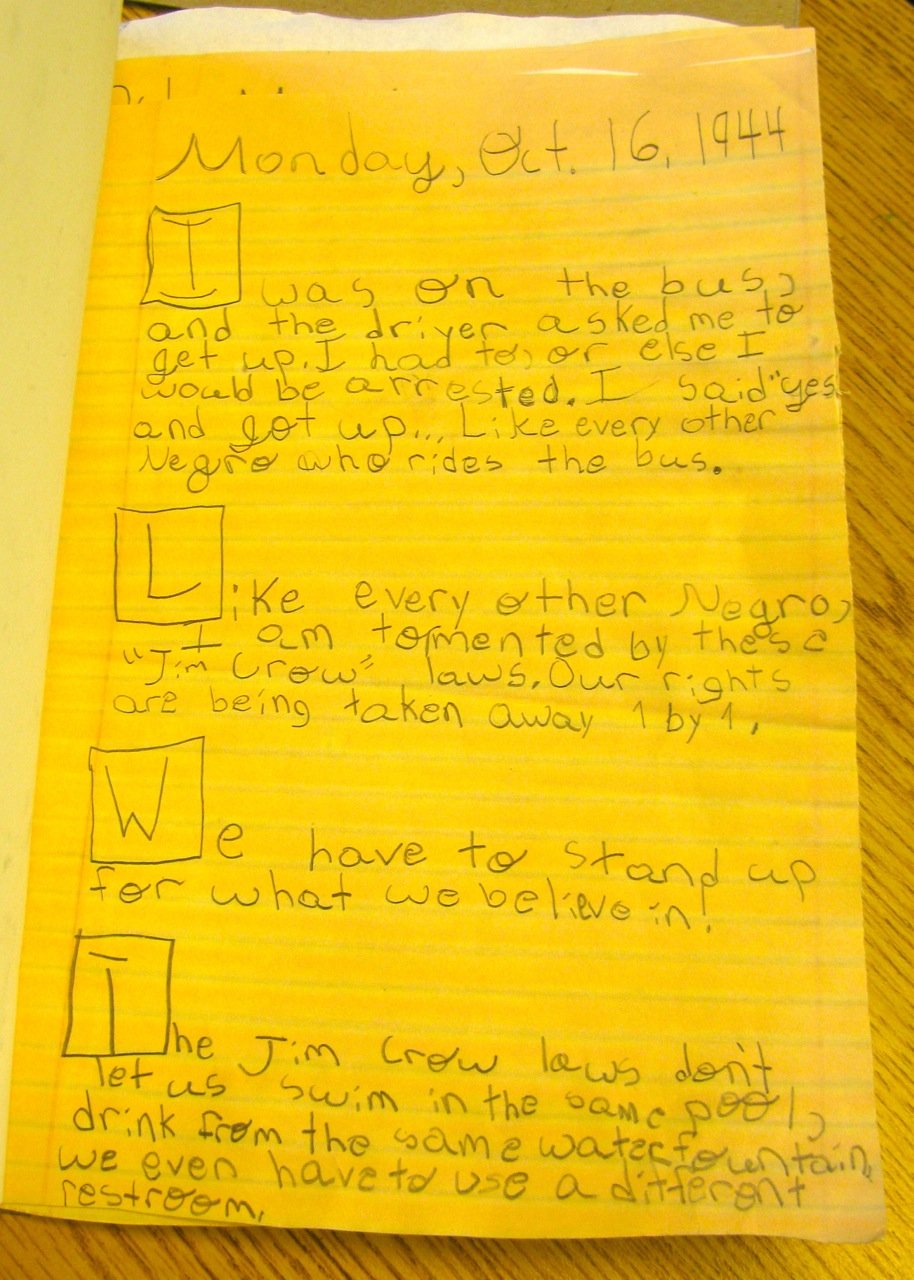 Monday, Oct. 16, 1944
I was on the bus,
and the driver asked me to
get up. I had to, or else I
would be arrested. I said "yes
and got up... Like every other
Negro who rides the bus.
Like every other Negro,
I am tormented by these
"Jim Crow" laws. Our rights
are being taken away 1 by 1.
We have to stand up
for what we believe in!
The Jim Crow laws don't
let us swim in the same pool,
drink from the same water fountain,
we even have to use a different
restroom.